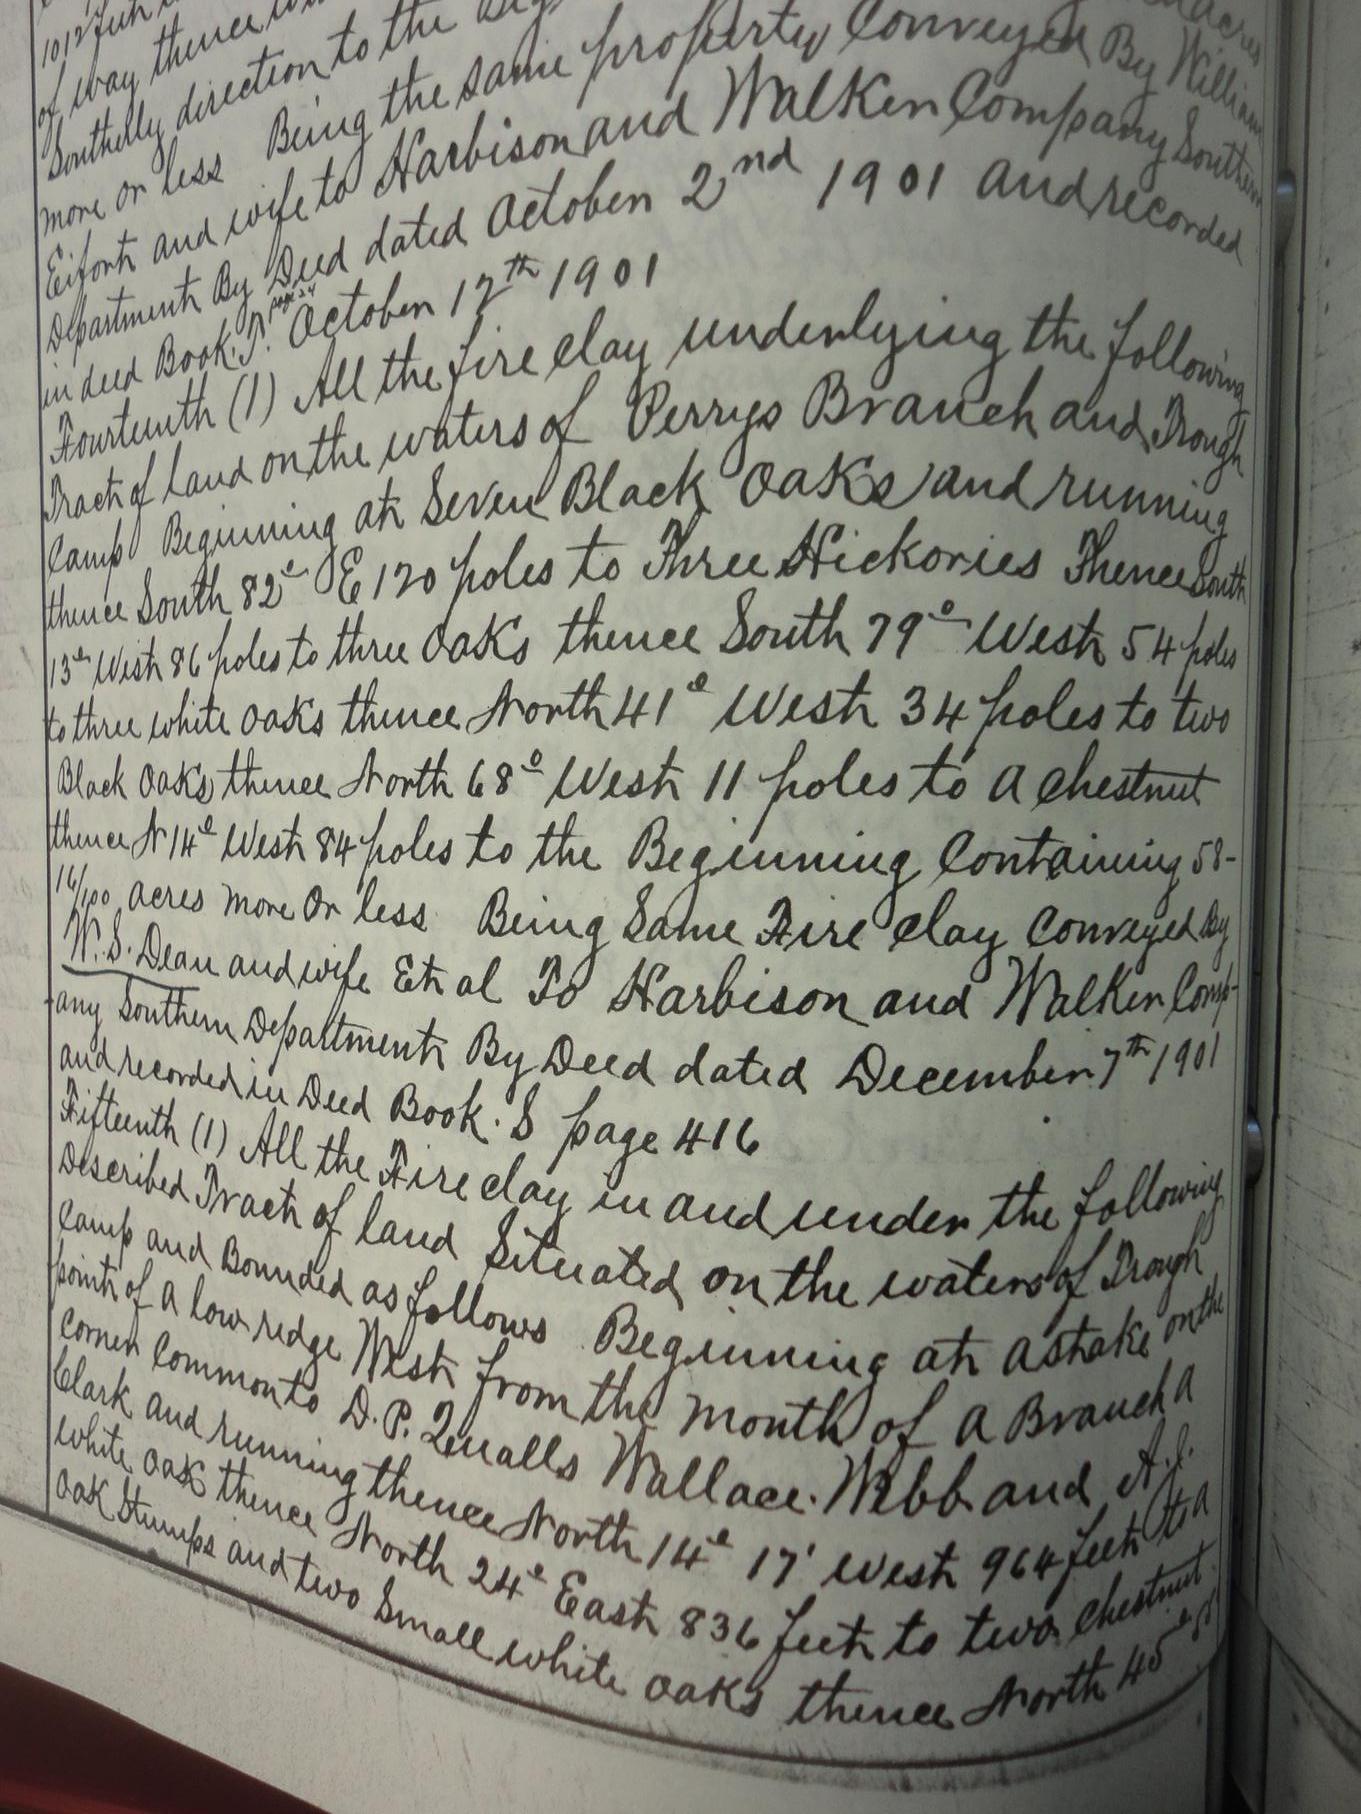 1012 feet
of way thence
Southerly direction to the
more or less Being the same property Conveyed By William
Eifort and wife to Harbison and Walker Company Southern
Department By Deed dated October 2nd 1901 and recorded
in deed Book. T. page 24 October 12th 1901
Fourteenth (1) All the fire clay underlying the following
Tract of land on the waters of Perrys Branch and Trough
Camp Beginning at Seven Black Oaks and running
thence South 82° E 120 poles to Three Hickories Thence South
13° West 86 poles to three Oaks thence South 79° West 54 poles
to three white oaks thence North 41° West 34 poles to two
Black Oaks thence North 68° West 11 poles to a chestnut
thence N 14° West 84 poles to the Beginning Containing 58-
16/100 acres more or less Being Same Fire clay Conveyed By
W. S. Dean and wife Et al To Harbison and Walker Comp-
any Southern Department By Deed dated December 7th 1901
and recorded in Deed Book. S page 416
Fifteenth (1) All the Fire clay in and under the following
Described Tract of land Situated on the waters of Trough
Camp and Bounded as follows Beginning at a stake on the
point of a low ridge West from the mouth of a Branch a
Corner Common to D. P. Qualls Wallace. Webb and A. J.
Clark and running thence North 14° 17' West 964 feet to a
white oak thence North 24° East 836 feet to two chestnut
oak Stumps and two Small white oaks thence North 45°